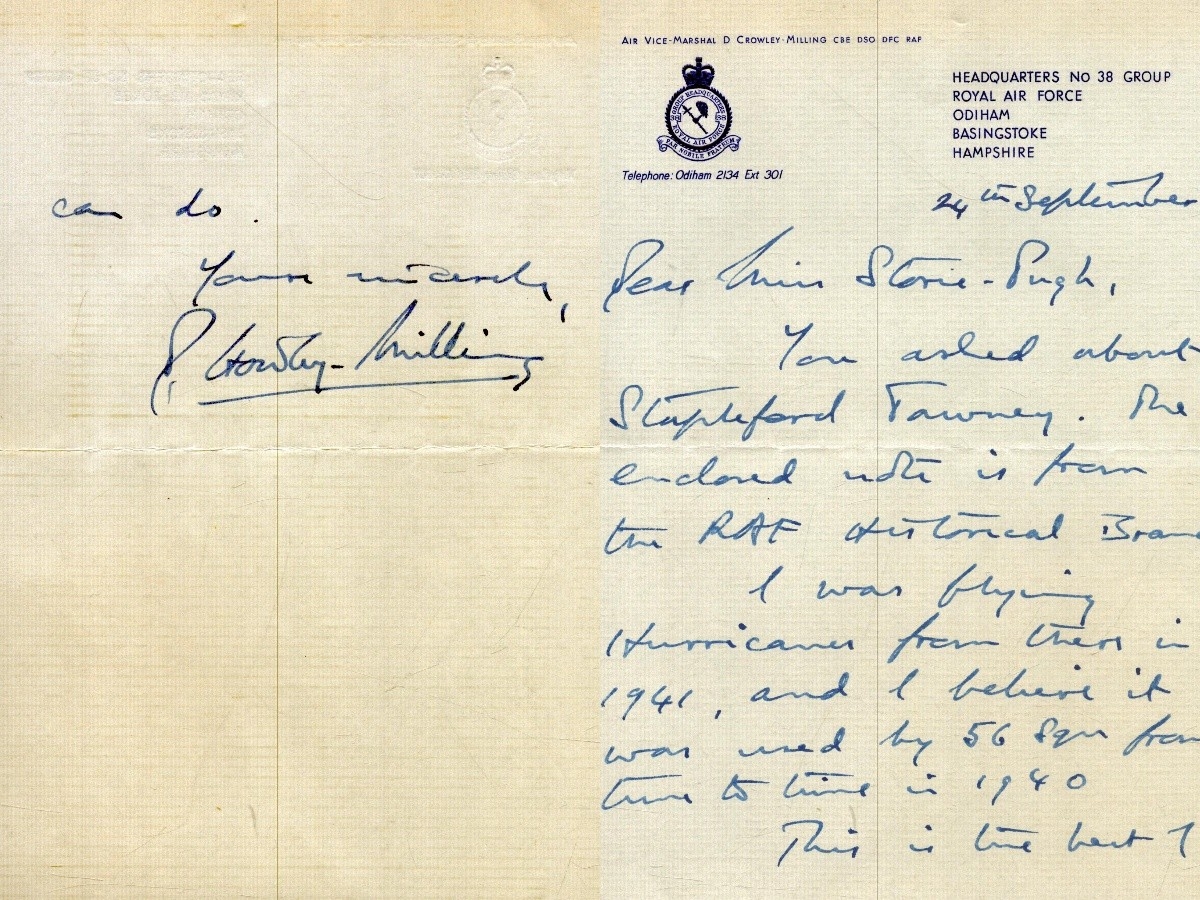 AIR VICE-MARSHAL D CROWLEY-MILLING CBE DSO DFC RAF
HEADQUARTERS No 38 GROUP
ROYAL AIR FORCE
ODIHAM
BASINGSTOKE
HAMPSHIRE
GROUP HEADQUARTERS
38 38
ROYAL AIR FORCE
PAR NOBILE FRATRUM
Telephone: Odiham 2134 Ext 301
24th September
Dear Miss Storie-Pugh,
You asked about
Stapleford Tawney. The
enclosed note is from
the RAF Historical Branc
I was flying
Hurricanes from there in
1941, and I believe it
was used by 56 Sqn from
time to time in 1940
This is the best I
can do.
Yours sincerely,
D. Crowley-Milling